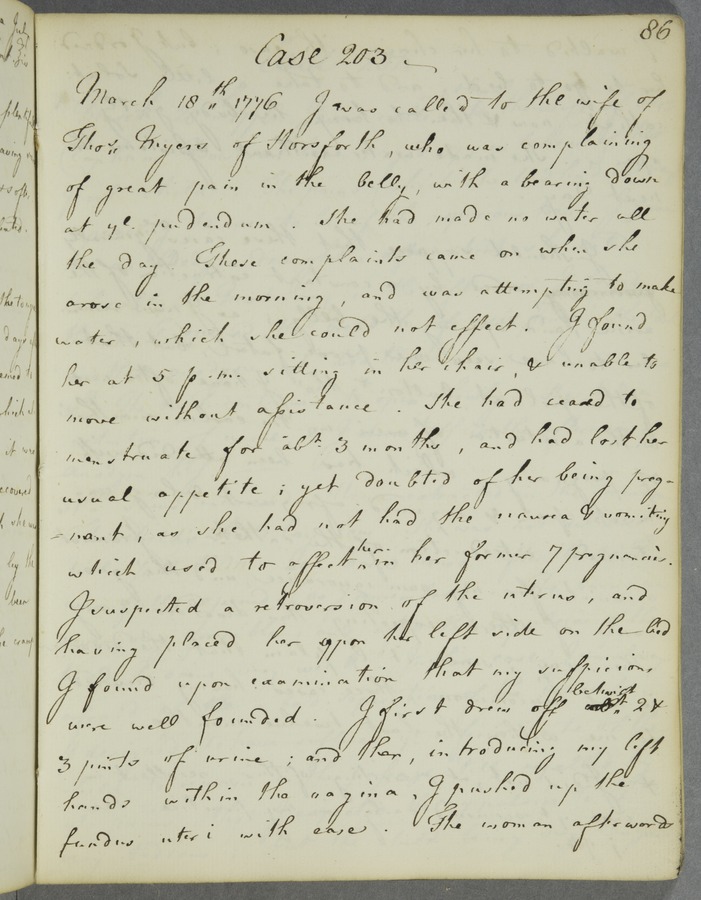 86
Case 203
March 18th 1776 I was called to the wife of
Thos. Myers of Horsforth, who was complaining
of great pain in the belly, with a bearing down
at ye. pudendum. She had made no water all
the day. These complaints came on when she
arose in the morning, and was attempting to make
water, which she could not effect. I found
her at 5 p.m. sitting in her chair, & unable to
move without assistance. She had ceased to
menstruate for abt. 3 months, and had lost her
usual appetite; yet doubted of her being preg-
=nant, as she had not had the nausea & vomiting
which used to affect her in her former 7 pregnancies.
I suspected a retroversion of the uterus, and
having placed her upon her left side on the bed
I found upon examination that my suspicions
were well founded. I first drew off betwixt 2 &
3 pints of urine; and then, introducing my left
hand within the vagina, I pushed up the
fundus uteri with ease. The woman afterwards